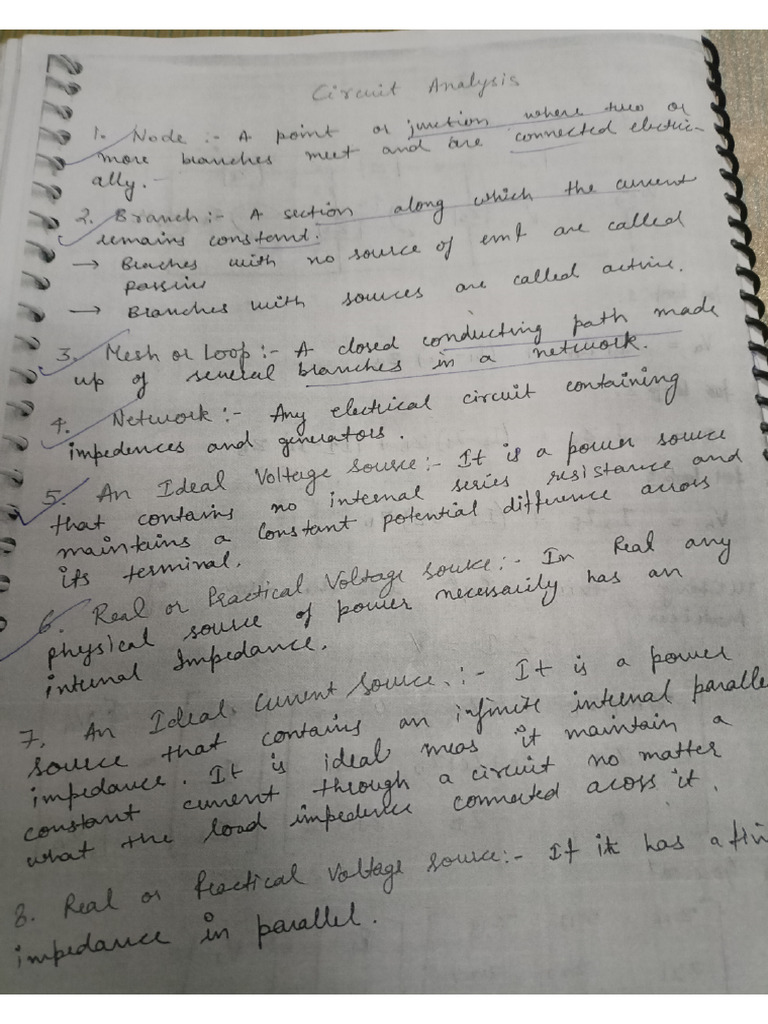 Circuit Analysis
1. Node :- A point or junction where two or
more branches meet and are connected electric-
ally.-
2. Branch:- A section along which the current
remains constant.
→ Braches with no source of emf are called
passive
→ Branches with sources are called active.
3. Mesh or Loop:- A closed conducting path made
up of several branches in a network.
4. Network:- Any electrical circuit containing
impedences and generators.
5. An Ideal Voltage source:- It is a power source
that contains no internal series resistance and
maintains a constant potential difference across
its terminal.
6. Real or Practical Voltage source:- In Real any
physical source of power necessarily has an
internal Impedance.
7. An Ideal Current Source.:- It is a power
source that contains an infinite internal paralle
impedance. It is ideal meas it maintain a
constant current through a circuit no matter
what the load impedence connected across it.
8. Real or Practical Voltage source:- If it has a fin
impedance in parallel.